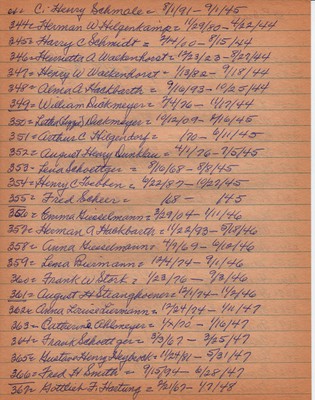 C. Henry Schmale = 8/1/91 - 9/1/45
344 = Herman W Helgenkamp = 11/29/80 - 4/22/44
345 = Harry C Schmidt = - 8/15/44
346 = Henrietta A Wackenhorst = 12/23/23 - 8/27/44
347 = Henry W Wackenhorst = 1/13/82 - 9/18/44
348 = Alma A Hackbarth = 9/16/93 - 10/25/44
349 = William Dickmeyer = 9/4/76 - 11/17/44
350 = Dickmeyer = 10/12/09 - 4/16/45
351 = Arthur C Hilgendorf = /70 - 6/11/45
352 = August Henry Dunklau = 4/1/76 - 7/5/45
353 = Lena Schoettger = 8/10/68 - 8/8/45
354 = Henry C Toebben = 6/22/87 - 10/29/45
355 = Fred Scheer = /68 - /45
356 = Emma Gusselmann = 3/29/04 - 1/11/46
357 = Herman A Hackbarth = 11/22/93 - 2/18/46
358 = Anna Gusselmann = 4/9/69 - 6/10/46
359 = Lena Biermann = 12/4/74 - 9/1/46
360 = Frank W Stork = 1/23/76 - 9/3/46
361 = August H Stranghoener = 12/1/74 - 11/2/46
362 = Anna Louise Biermann = 10/24/74 - 1/11/47
363 = Catherine Ahlemeyer = 1/5/70 - 1/16/47
364 = Frank Schoettger = 3/3/67 - 3/25/47
365 = Gustav Henry = 11/24/81 - 5/31/47
366 = Fred H Smith = 9/15/94 - 6/28/47
367 = Gottlieb F. Hartung = 2/21/67 - 1/7/48